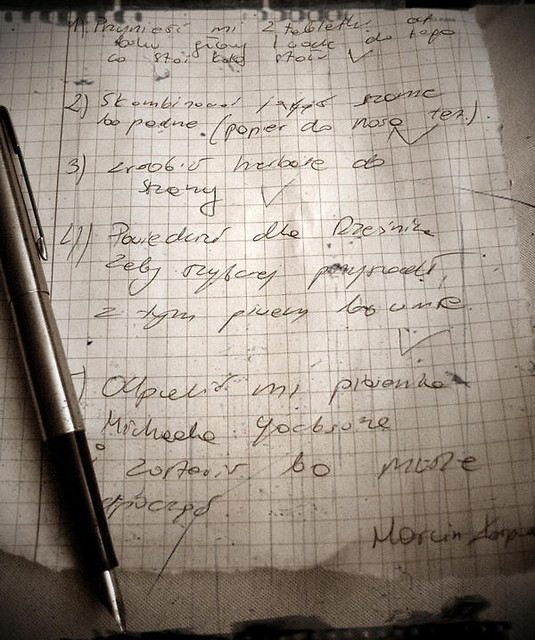 1) Przynieść mi 2 tabletki od
bólu głowy i wodę do tego
co stoi koło stołu
2) Skombinować jakąś szamę
bo padnę. (papier do nosa też.)
3) zrobić herbatę do
szamy
4) Powiedzieć dla Rzeźnika
żeby szybciej przyszedł,
z tym piwem bo umrę.
) Odpalić mi piosenkę
Michaela Jacksona
zostawić bo może
Marcin